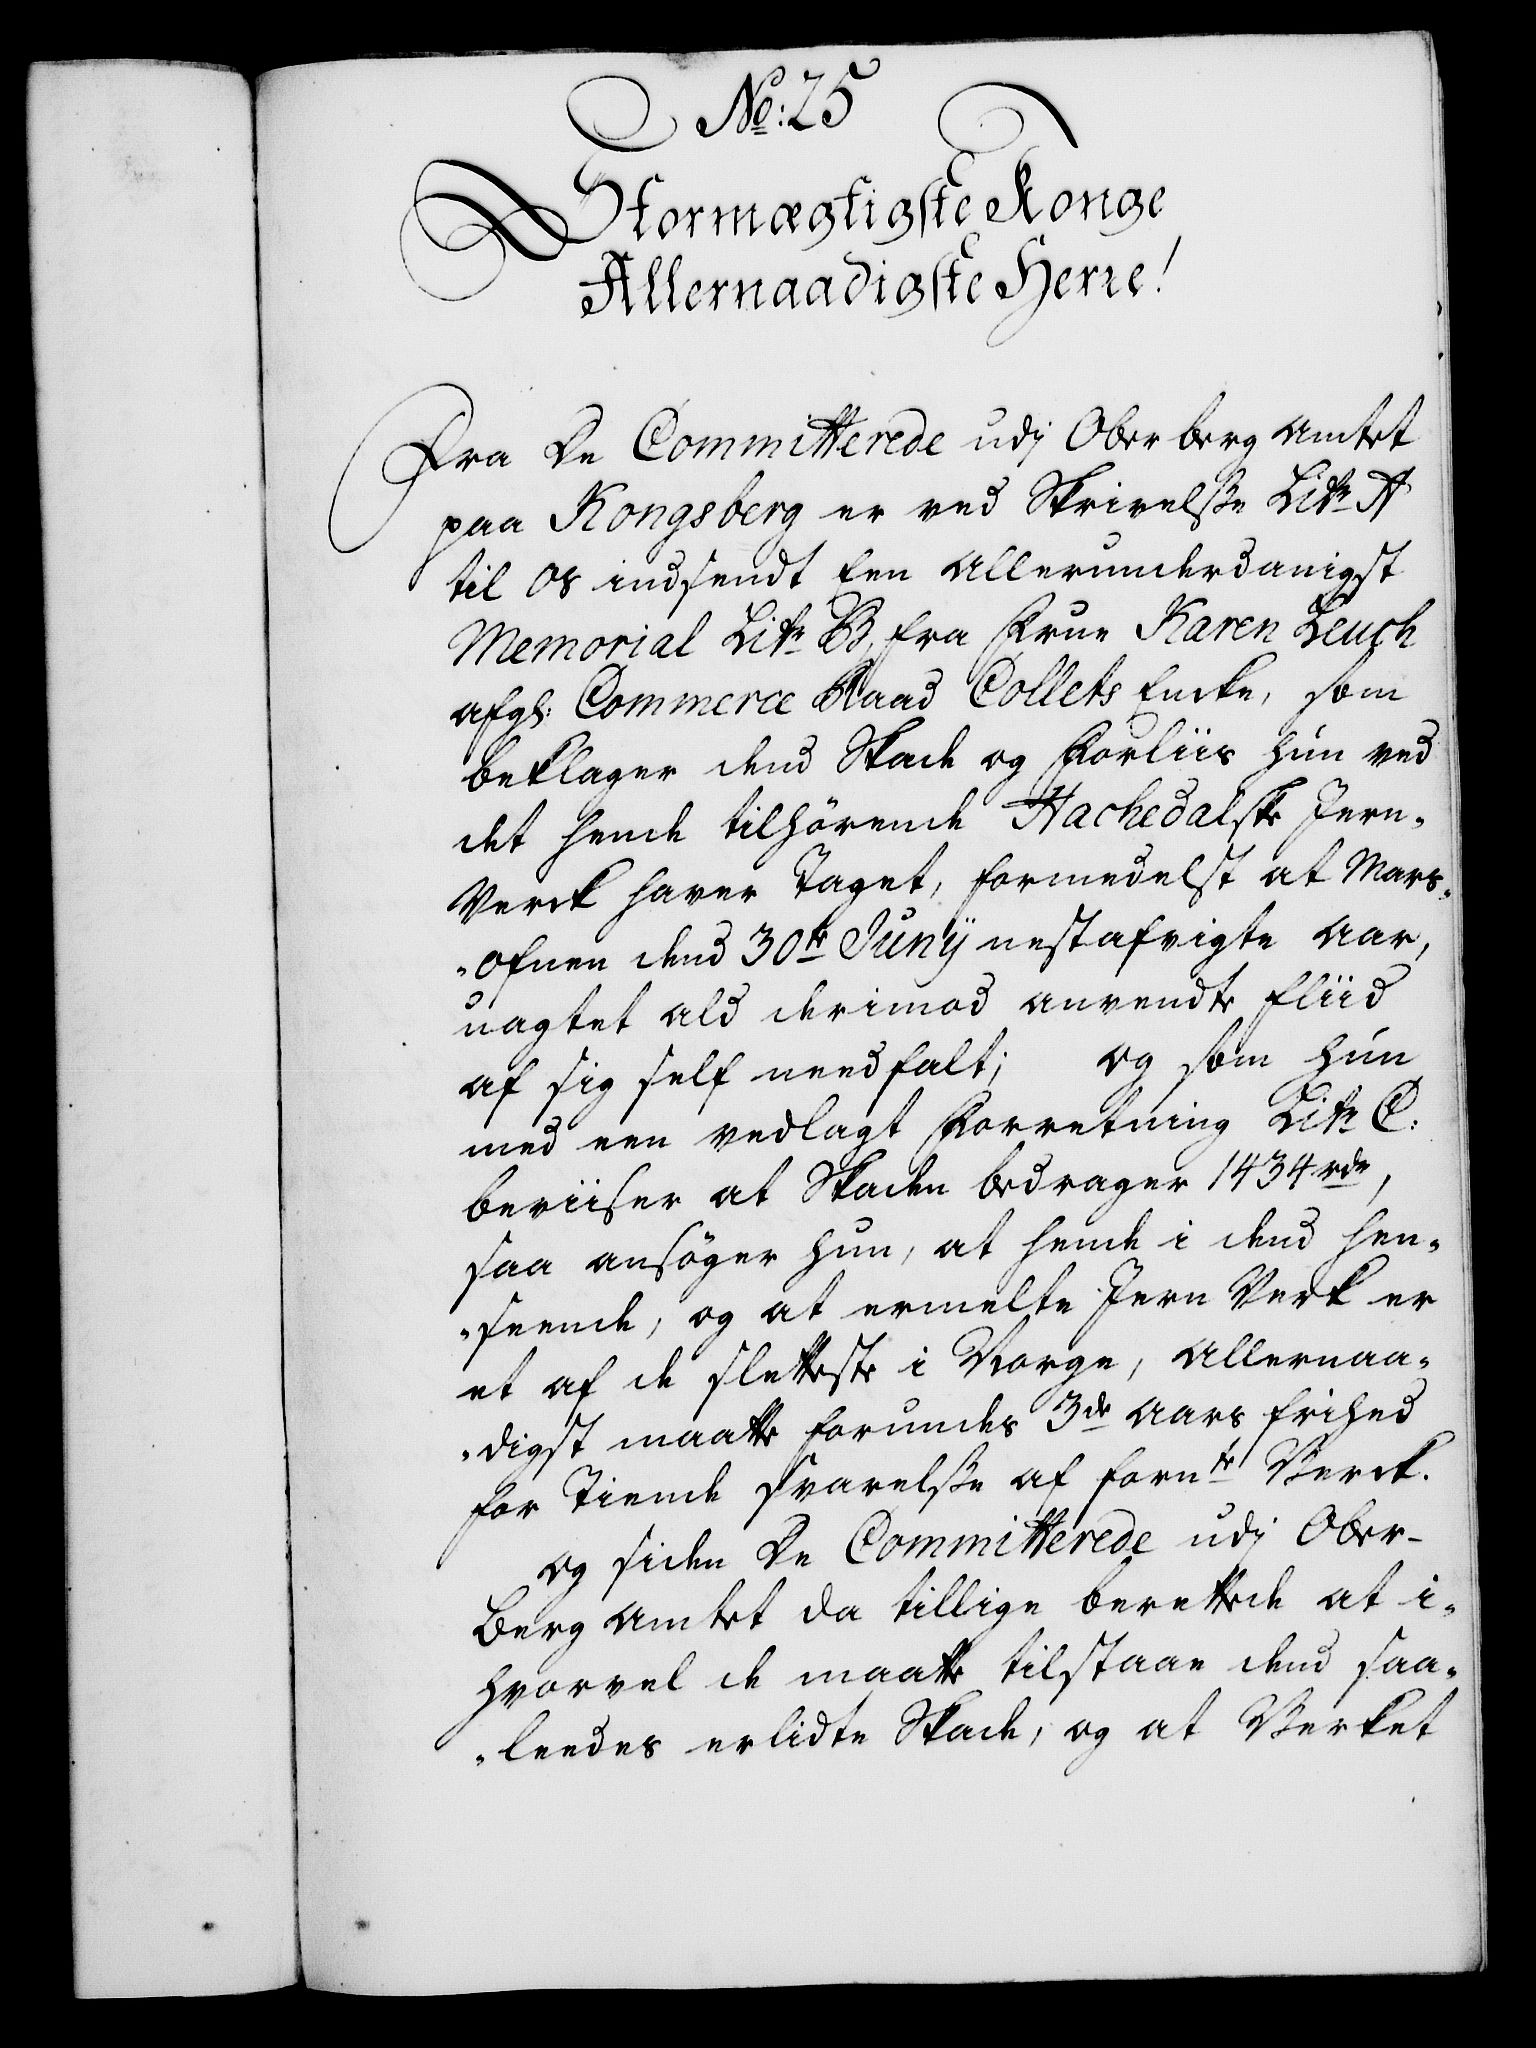 No: 25
Stormægtigste Konge
Allernaadigste Herre!
Fra De Committerede udj Oberberg Amtet
paa Kongsberg er ved Skrivelsse Litr A
til os indsendt Een allerunderdanigst
Memorial Litr B, fra Frue Karen Leuch
afgl: Commerce Raad Collets Encke, som
beklager dend Skade og Forliis hun ved
det hende tilhörende Hachedalske Jern-
Verck haver taget, formedelst at Mars-
-ofnen dend 30te Junÿ nestafvigte Aar,
uagtet ald derimod anvendte fliid
af sig self needfalt; og som hun
med een vedlagt Forretning Litr C:
beviiser at Skaden bedrager 1434 rdr,
saa ansöger hun, at hende i dend hen-
-seende, og at ermelte Jern Verk er
et af de sletteste i Norge, Allernaa-
-digst maatte forundes 3de Aars frihed
for Tiende Svarelsse af fornte Verck.
og siden De Committerede udj Ober-
Berg Amtet da tillige berettede at i-
hvorvel de maatte tilstaae dend saa-
-leedes erlidte Skade, og at Verket